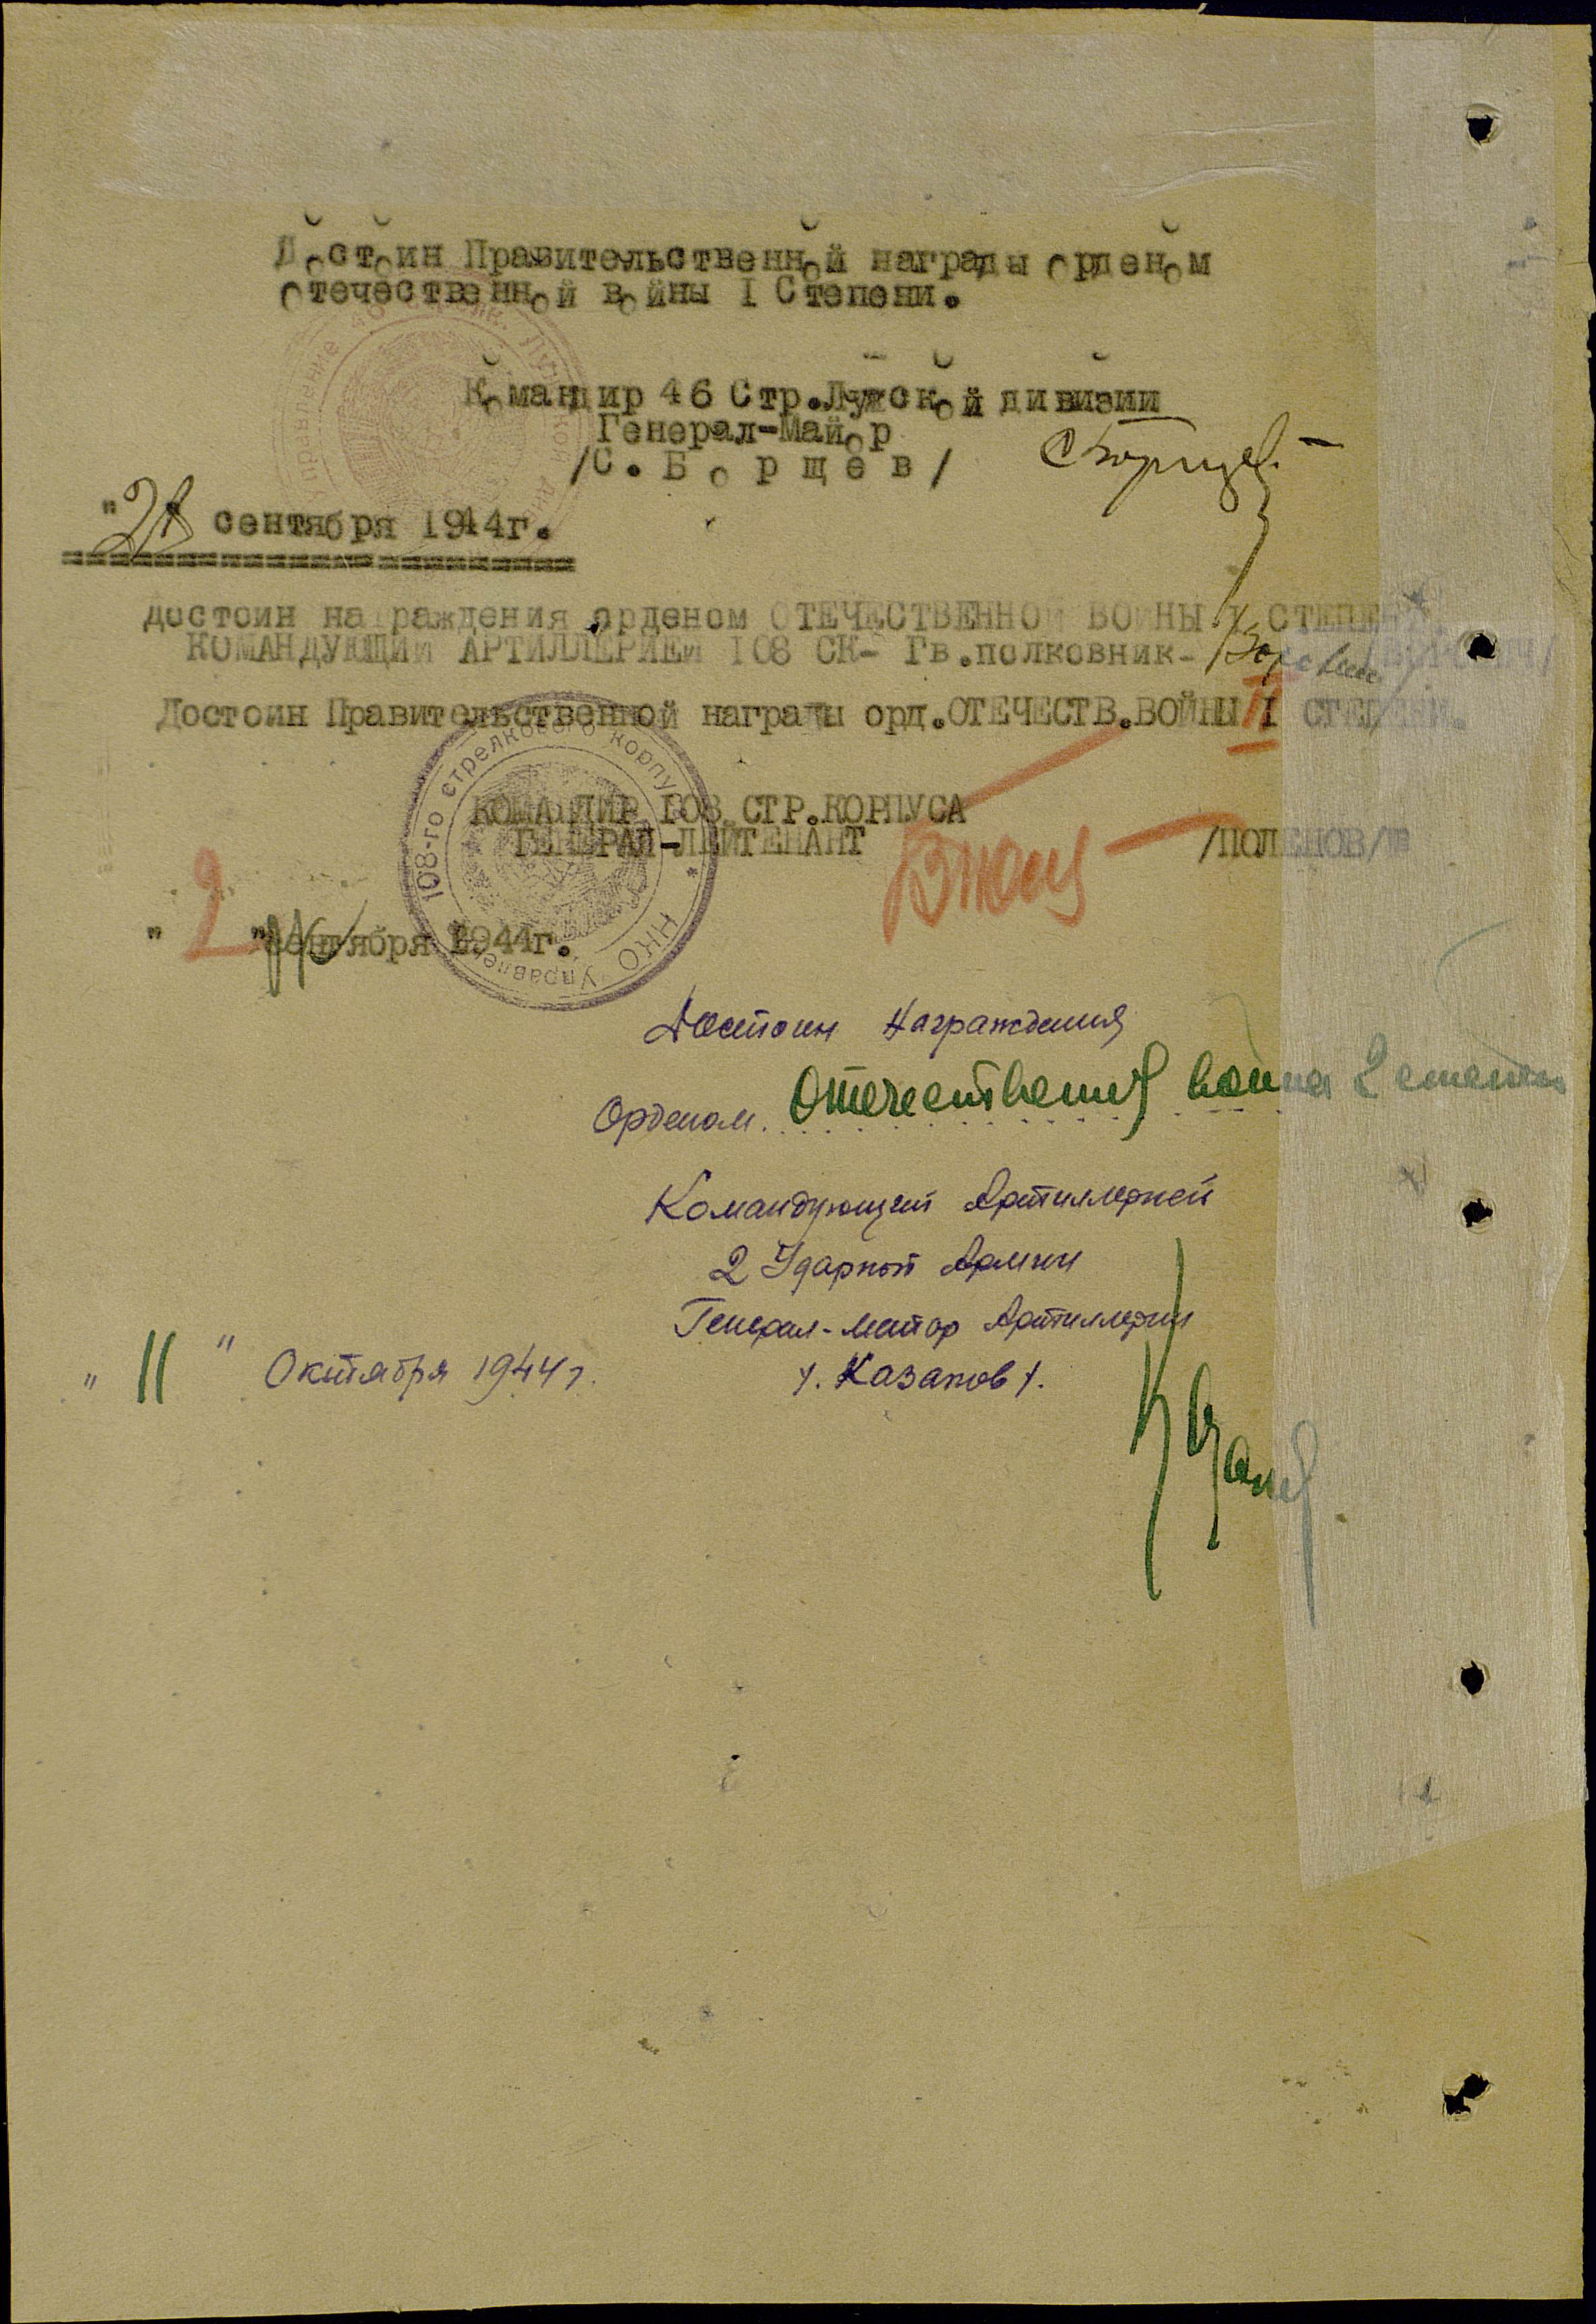 Достоин Правительственной награды орденом
отечественной войны I Степени.
Командир 46 Стр.Лужской дивизии
Генерал-Майор
/С. Борщев/
" сентября 1944г.
достоин награждения орденом ОТЕЧЕСТВЕННОЙ ВОЙНЫ I СТЕПЕНИ
КОМАНДУЮЩИЙ АРТИЛЛЕРИЕЙ 108 СК- Гв.полковник-
Достоин Правительственной награды орд.ОТЕЧЕСТВ.ВОЙНЫ II СТЕПЕНИ.
108-го стрелкового корпуса * НКО Управление
КОМАНДИР 108 СТР.КОРПУСА
ГЕНЕРАЛ-ЛЕЙТЕНАНТ /ПОЛЕНОВ/
" 2 "сентября 1944г.
Достоин Награждения
Орденом. Отечественная война 2 степени
Командующий Артиллерией
2 Ударной Армии
Генерал-майор Артиллерии
"11" Октября 1944 г. /. Казаков /.